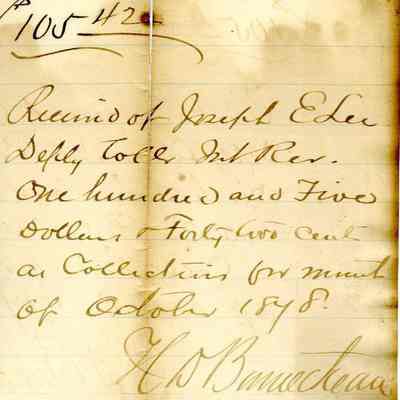 $105 42
Received of Joseph E Lee
Depty Coller Int Rev.
One hundred and Five
Dollars & Forty two cents
as Collections for month
of October 1878.
H D